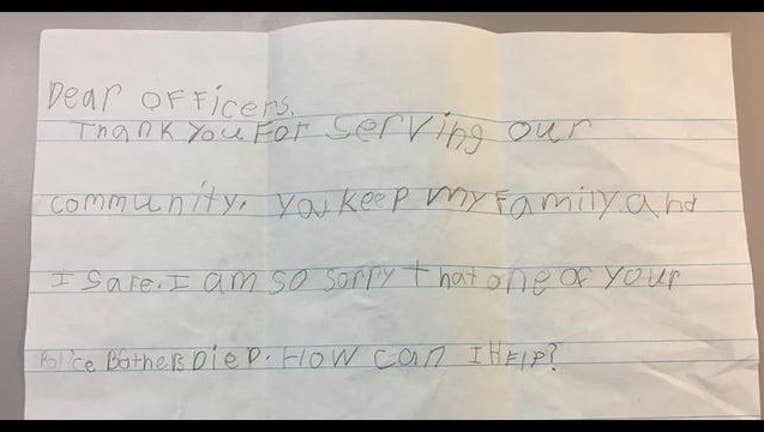 Dear OFFicers,
Thank You For Serving our
community. You keep my Family and
I Safe. I am so sorry that one of your
Police BotheRs DieD. How can I HElP?